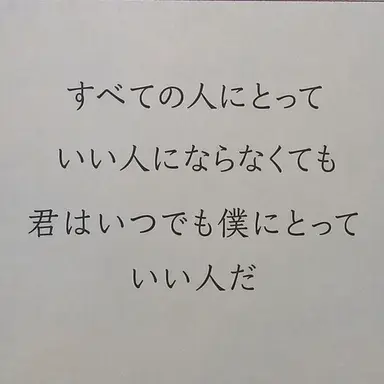 すべての人にとって
いい人にならなくても
君はいつでも僕にとって
いい人だ